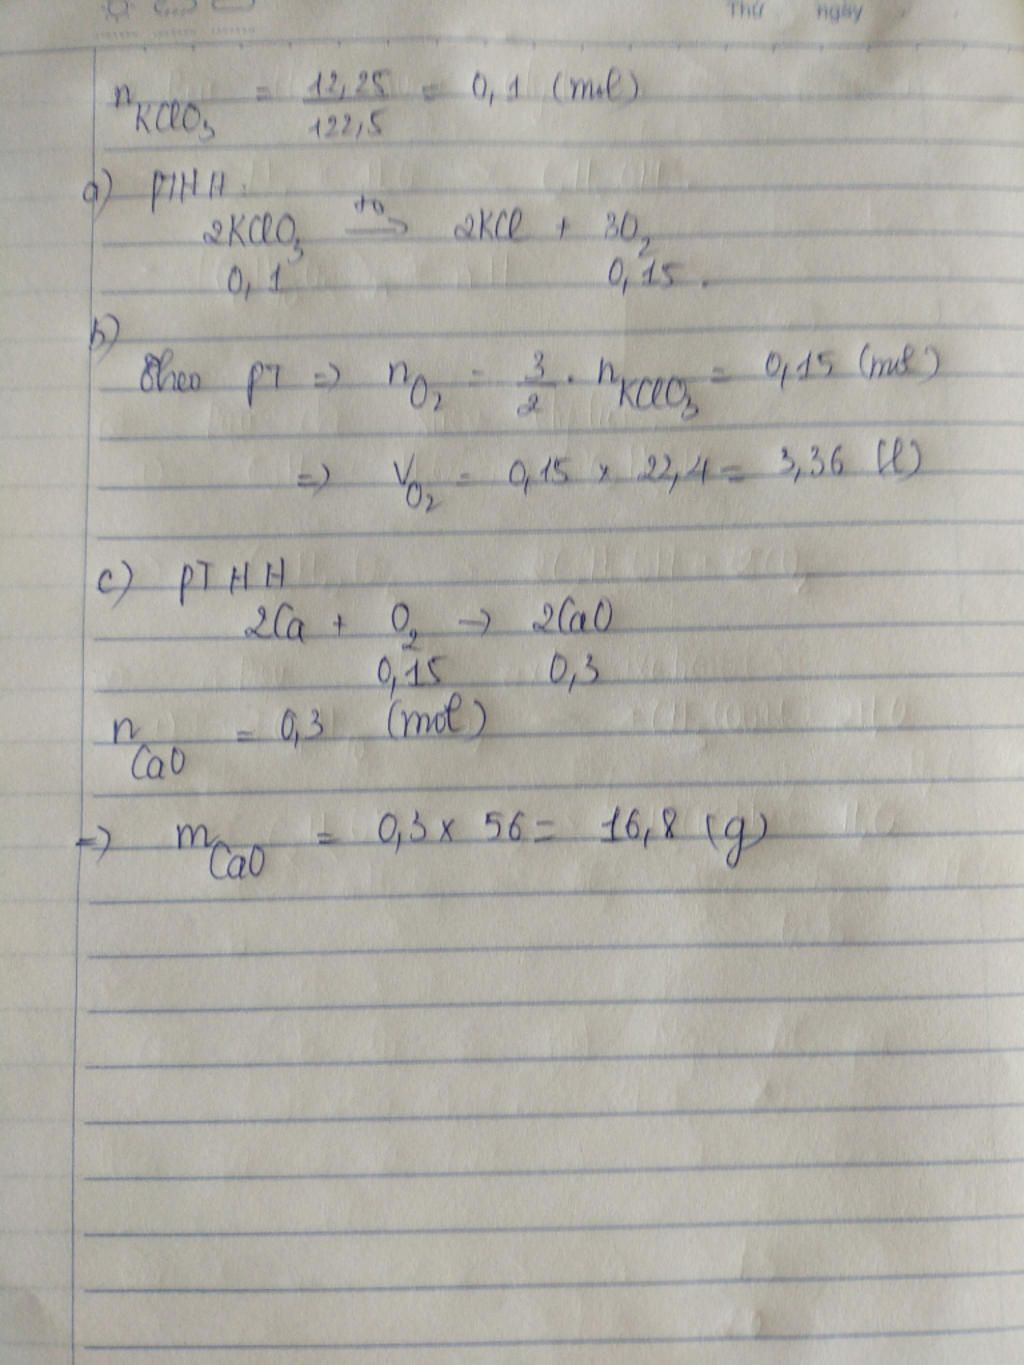 Thứ ngày
n KClO3 = 12,25 / 122,5 = 0,1 (mol)
a) PTHH:
2KClO3 →(to) 2KCl + 3O2
0,1 0,15.
b)
Theo PT => nO2 = 3/2 . nKClO3 = 0,15 (mol)
=> VO2 = 0,15 x 22,4 = 3,36 (l)
c) PTHH
2Ca + O2 → 2CaO
0,15 0,3
nCaO = 0,3 (mol)
=> mCaO = 0,3 x 56 = 16,8 (g)